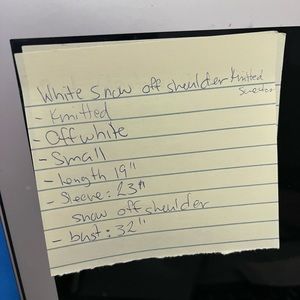 White Snow off shoulder Knitted
Sweater
- Knitted
- Off white
- Small
- Length 19"
- Sleeve: 23"
snow off shoulder
- bust: 32"